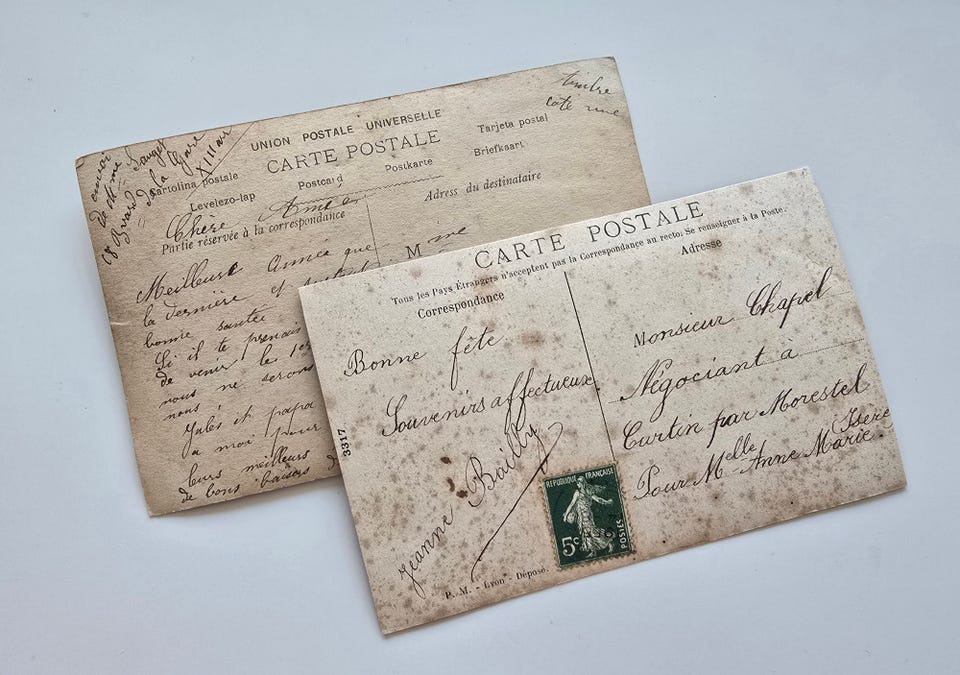 envoi
de Mme Sauger
8 Bvard de la Gare
XIII arr
timbre
côté vue
UNION POSTALE UNIVERSELLE
CARTE POSTALE
Cartolina postale
Postcard
Postkarte
Tarjeta postal
Levelezo-lap
Briefkaart
Chère
Partie réservée à la correspondance
Adress du destinataire
Meilleure Année que
la dernière et
bonne santée
Si il te prenais
de venir le 1er
nous ne serons
nous
Jules et papa
a moi pour
leurs meilleurs
de bons baisers
Mme
CARTE POSTALE
Tous les Pays Étrangers n'acceptent pas la Correspondance au recto. Se renseigner à la Poste.
Correspondance
Adresse
Bonne fête
Souvenirs affectueux.
Jeanne Bailly
Monsieur Chapel
Négociant à
Curtin par Morestel
Isère
Pour Melle Anne Marie.
3317
P. M. - Lyon - Déposé.
REPUBLIQUE FRANÇAISE
5c
POSTES